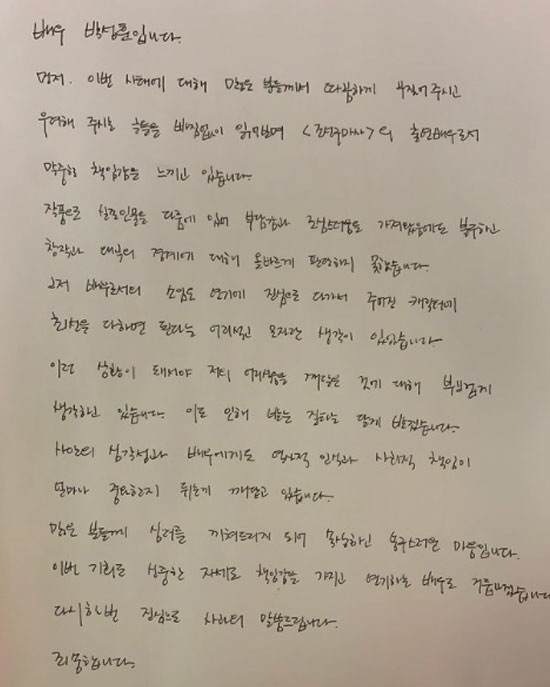 배우 박성훈입니다.
먼저. 이번 사태에 대해 많은 분들께서 따끔하게 꾸짖어 주시고
우려해 주시는 글들을 빠짐없이 읽어보며 <조선구마사>의 출연배우로서
막중한 책임감을 느끼고 있습니다.
작품으로 실존인물을 다룸에 있어 부담감과 조심스러움도 가져왔음에도 불구하고
창작과 왜곡의 경계에 대해 올바르게 판단하지 못했습니다.
그저 배우로서의 소임은 연기에 진심으로 다가서 주어진 캐릭터에
최선을 다하면 된다는 어리석고 모자란 생각이 있었습니다.
이런 상황이 돼서야 저의 어리석음을 깨달은 것에 대해 부끄럽게
생각하고 있습니다. 이로 인해 받는 질타는 달게 받겠습니다.
사안의 심각성과 배우에게도 역사적 인식과 사회적 책임이
얼마나 중요한지 뒤늦게 깨닫고 있습니다.
많은 분들께 심려를 끼쳐드리게 되어 죄송하고 송구스러운 마음입니다.
이번 기회로 신중한 자세로 책임감을 가지고 연기하는 배우로 거듭나겠습니다
다시 한번 진심으로 사과의 말씀드립니다.
죄송합니다.